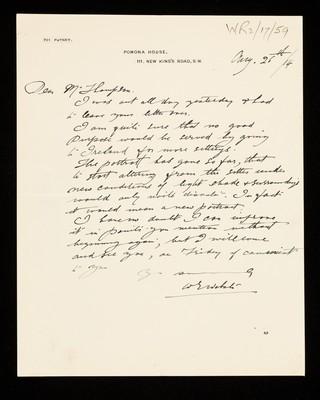 WR2/17/59
701 PUTNEY.
POMONA HOUSE,
111, NEW KING'S ROAD, S.W.
Aug. 21st /14
Dear Mr Thompson.
I was out all day yesterday & had
to leave your letter over.
I am quite sure that no good
purpose would be served by going
to Ireland for more sittings.
The portrait has gone so far, that
to start altering from the sitter under
new conditions of light shade & surroundings
would only invite disaster. In fact
it would mean a new portrait.
I have no doubt I can improve
it in points you mention without
beginning again, but I will come
and see you, on Friday if convenient
to you